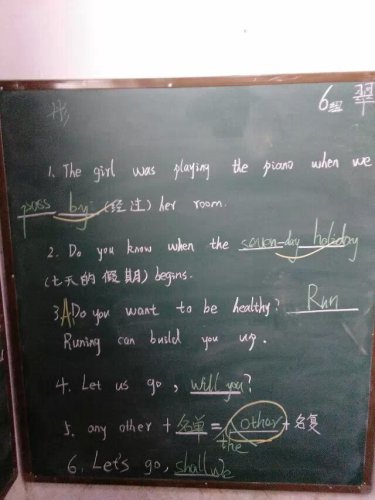 彤
6组 翠
1. The girl was playing the piano when we
pass by (经过) her room.
2. Do you know when the seven-day holiday
(七天的假期) begins.
3. A Do you want to be healthy? Run
Runing can build you up.
4. Let us go, will you?
5. any other + 名单 = other + 名复
the
6. Let's go, shall we